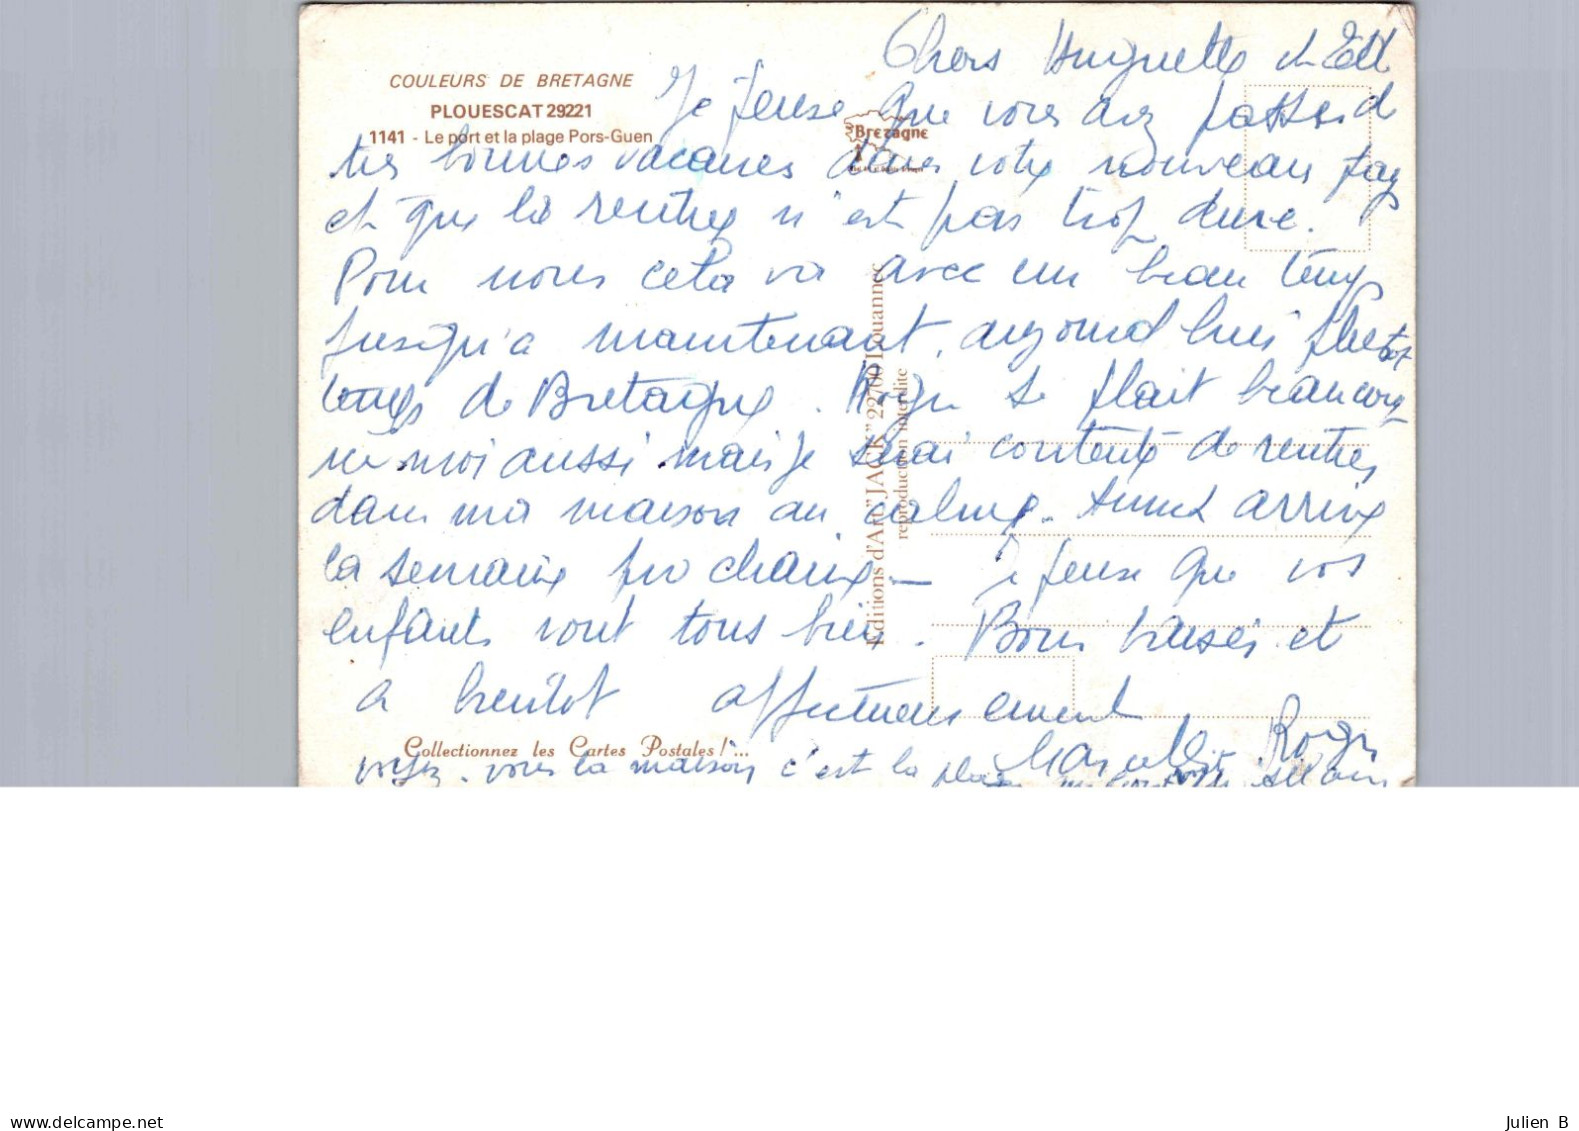 COULEURS DE BRETAGNE
PLOUESCAT 29221
1141 - Le port et la plage Pors-Guen
Bretagne
Editions d'Art "JACK" 22700 Louannec
reproduction interdite
Chers Huguette et
Je pense que vous avez passé de
très bonnes vacances dans votre nouveau pays
et que la rentrée n'est pas trop dure.
Pour nous cela va avec un beau temps
jusqu'à maintenant, aujourd'hui
temps de Bretagne. Roger se plait beaucoup
moi aussi mais je serai contente de rentrer
dans ma maison au calme. arrive
la semaine prochaine - Je pense que vos
enfants vont tous bien. Bons baisers et
a bientôt affectueusement
Roger
Collectionnez les Cartes Postales !...
voyez-vous la maison c'est la
www.delcampe.net
Julien B